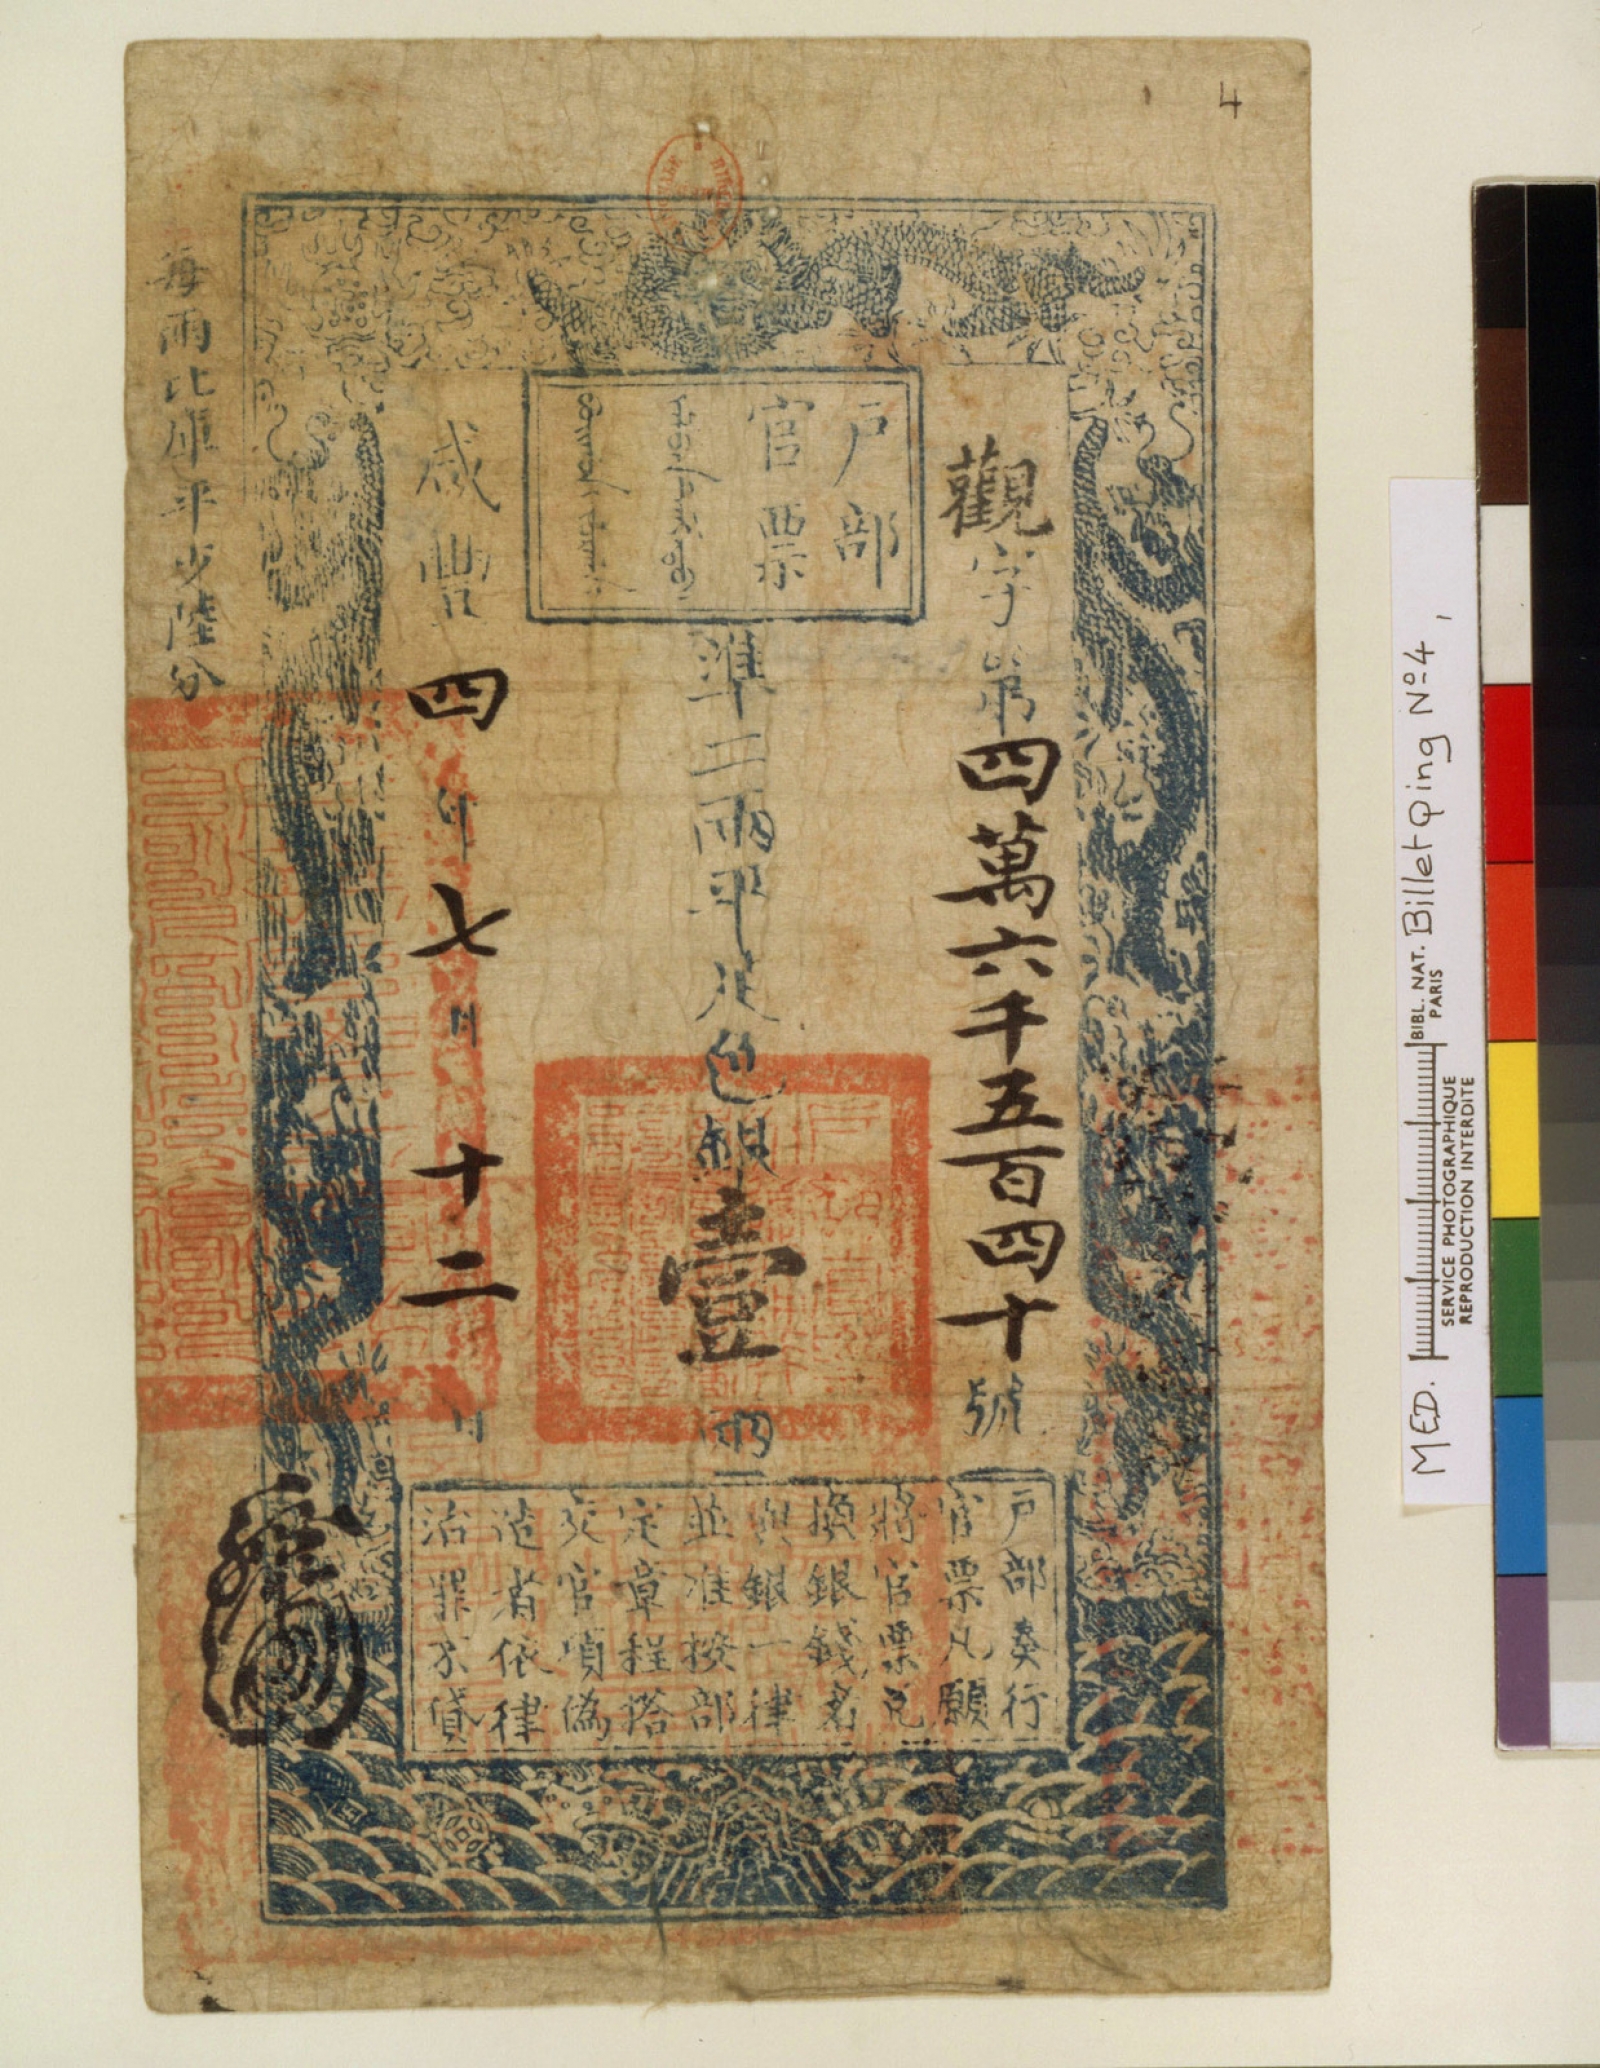 4
戶部
官票
觀字第四萬六千五百四十號
準二兩平足色銀壹兩
咸豐四年七月十二日
每兩比庫平少陸分
戶部奏行
官票凡願
將官票兌
換銀錢者
與銀一律
並准按部
定章程搭
交官項偽
造者依律
治罪不貸
MED. BIBL. NAT. PARIS Billet Qing Nº 4,
SERVICE PHOTOGRAPHIQUE
REPRODUCTION INTERDITE